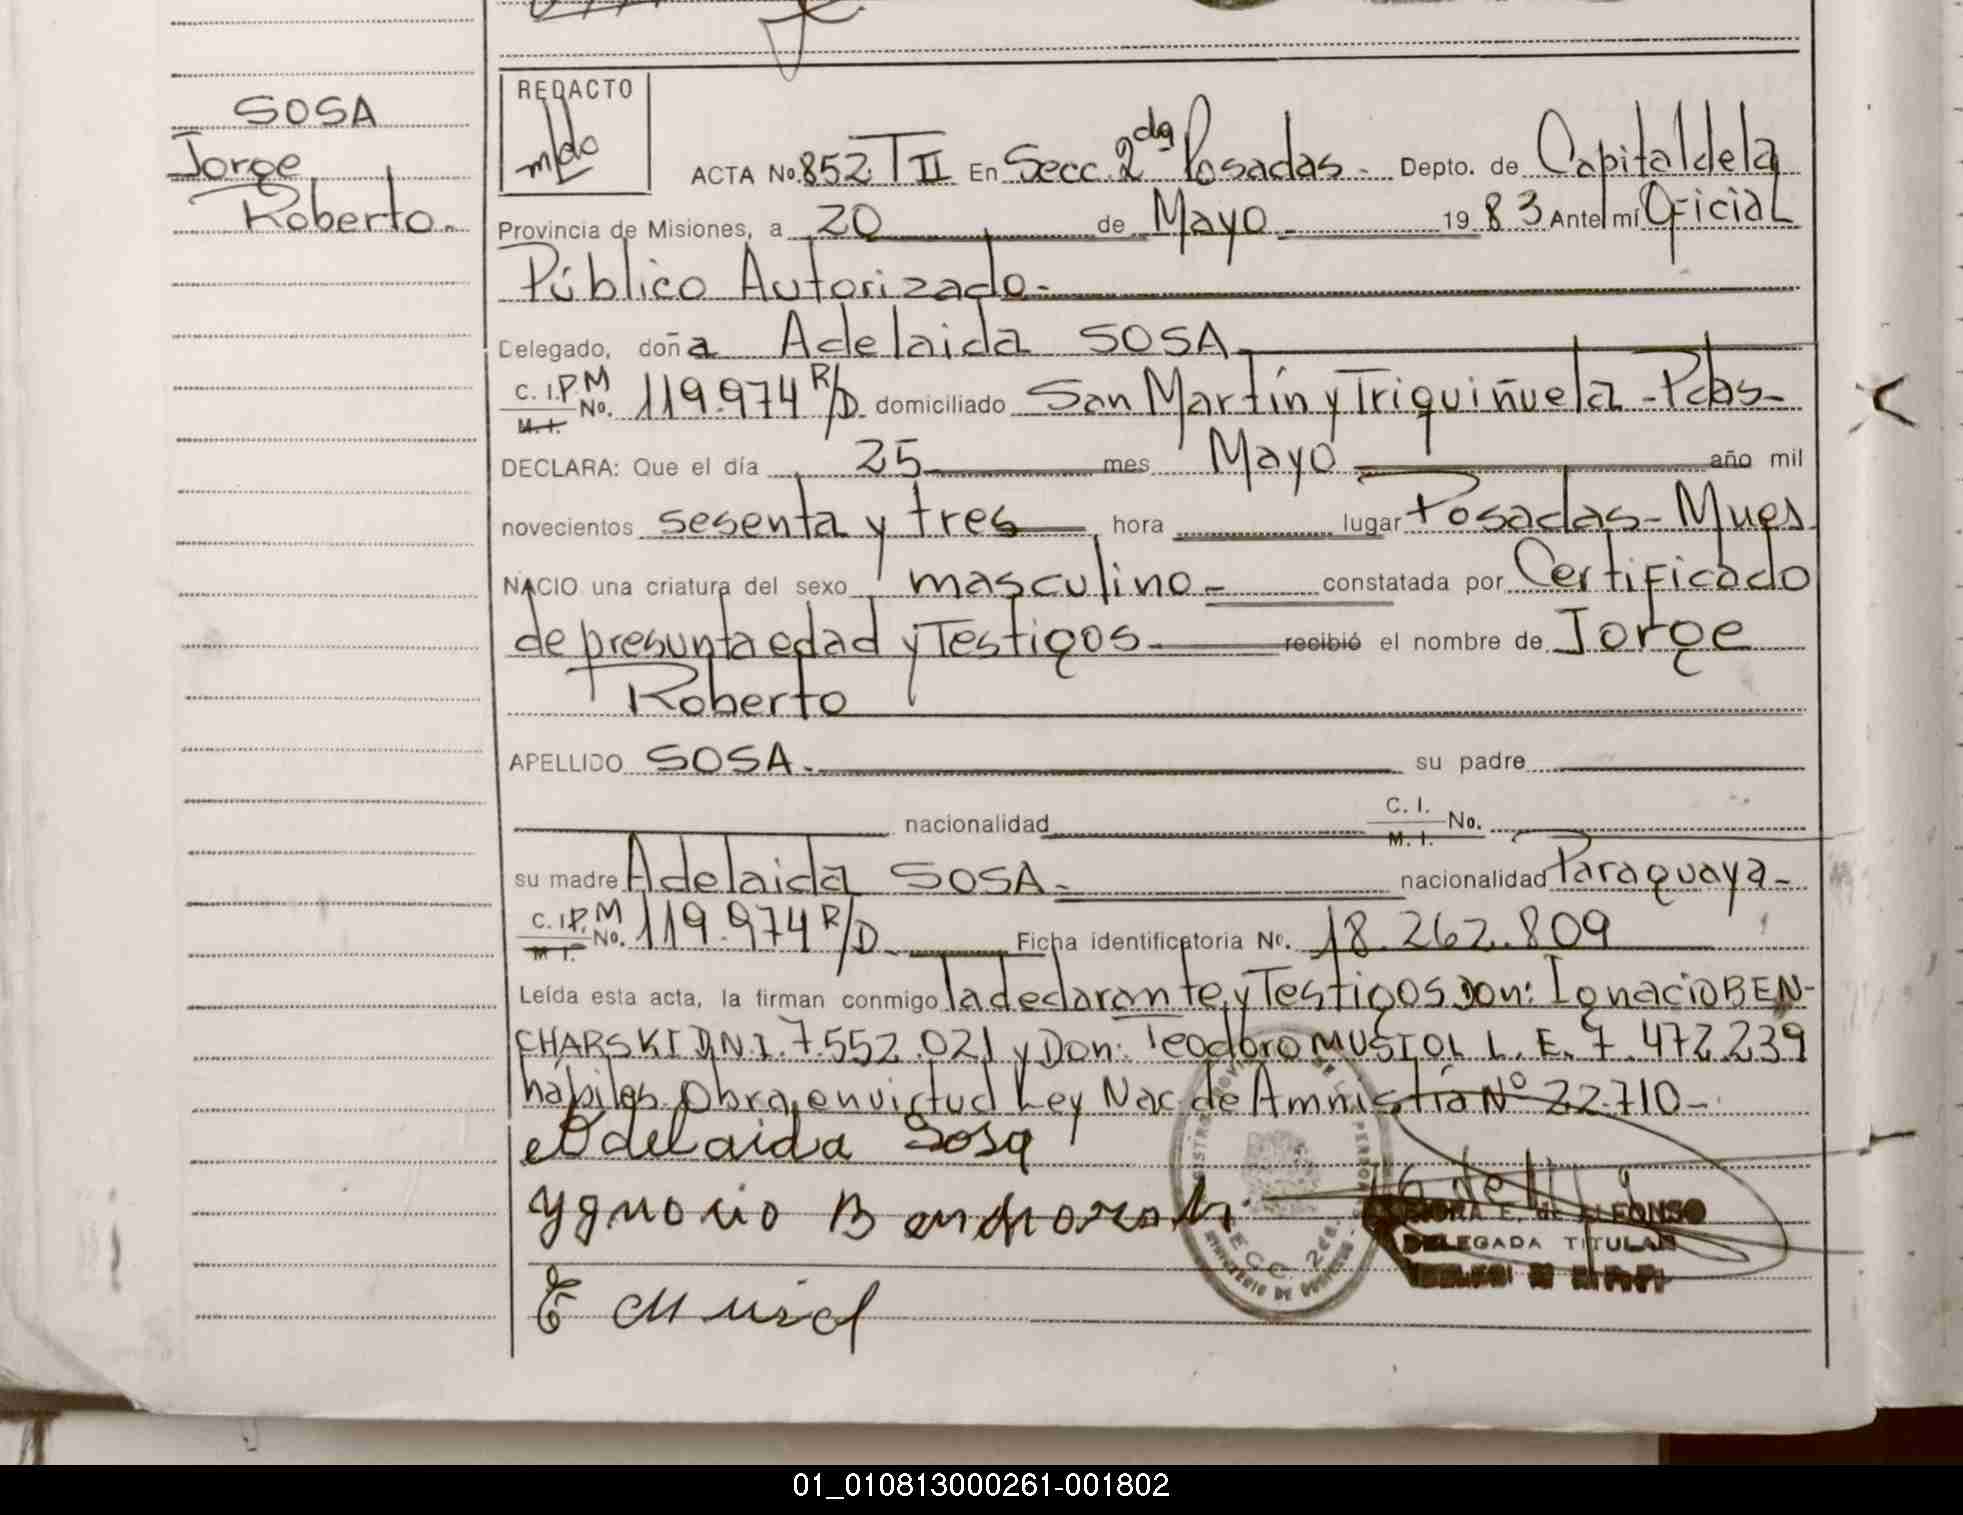 SOSA
Jorge
Roberto.-
REDACTO
ACTA No. 852 T II En Secc. 2da Posadas.- Depto. de Capital de la
Provincia de Misiones, a 20 de Mayo.- 1983 Ante mí Oficial
Público Autorizado.-
Delegado, doña Adelaida SOSA
C. I.P.M No. 119.974 R/D. domiciliado San Martín y Triquiñuela - Pdas-
M. I.
DECLARA: Que el día 25 mes Mayo año mil
novecientos sesenta y tres hora lugar Posadas - Mnes
NACIO una criatura del sexo masculino.- constatada por Certificado
de presunta edad y Testigos.- recibió el nombre de Jorge
Roberto
APELLIDO SOSA.- su padre
nacionalidad C. I. No.
M. I.
su madre Adelaida SOSA.- nacionalidad Paraguaya-
C. I.P.M No. 119.974 R/D. Ficha identificatoria No. 18.262.809
M. I.
Leída esta acta, la firman conmigo la declarante y Testigos Don: Ignacio BEN-
CHARSKI D.N.I. 7.552.021 y Don: Teodoro MUSIOL L. E. 7.472.239
hábiles. Obra en virtud Ley Nac. de Amnistía Nº 22.710-
Adelaida Sosa
DELEGADA TITULAR
SECC. 2da.
01_010813000261-001802